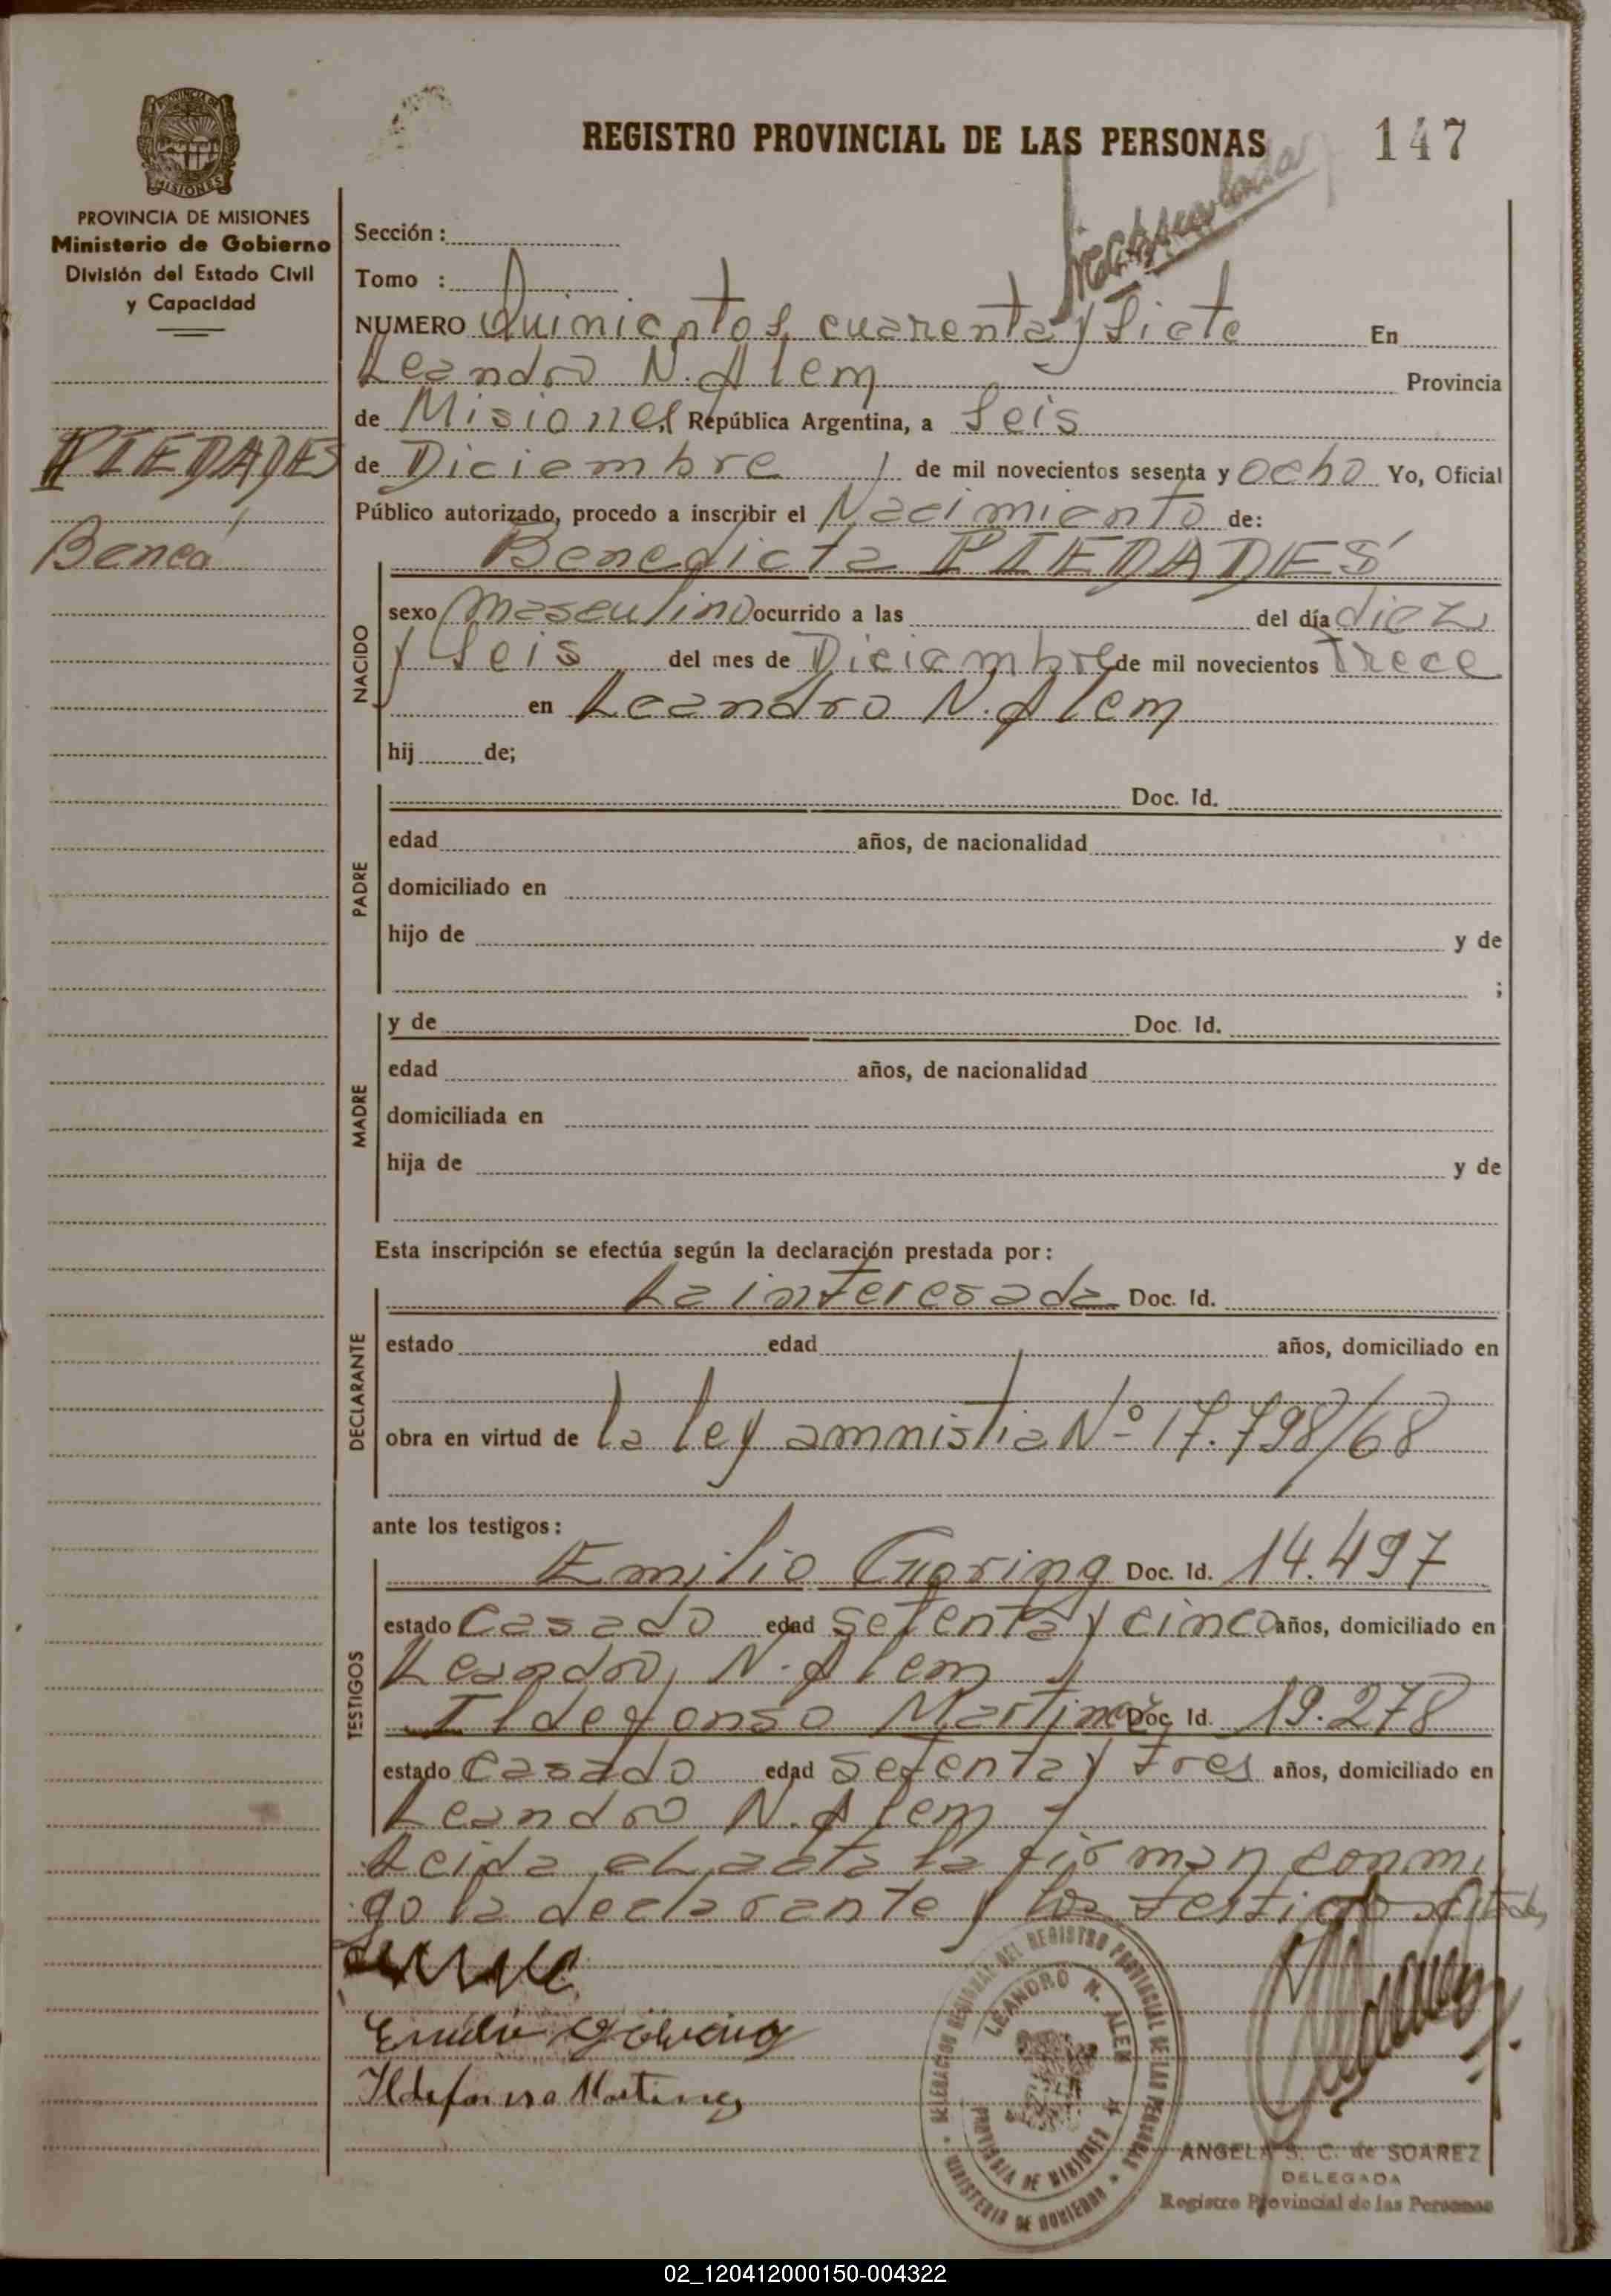 REGISTRO PROVINCIAL DE LAS PERSONAS
147
PROVINCIA DE MISIONES
Ministerio de Gobierno
División del Estado Civil
y Capacidad
PIEDADES
Sección :
Tomo :
NUMERO Quinientos cuarenta y siete En
Leandro N. Alem Provincia
de Misiones República Argentina, a Seis
de Diciembre de mil novecientos sesenta y ocho Yo, Oficial
Público autorizado, procedo a inscribir el Nacimiento de:
Benedicta PIEDADES
NACIDO
sexo masculino ocurrido a las del día diez
y seis del mes de Diciembre de mil novecientos Trece
en Leandro N. Alem
hij de;
PADRE
Doc. Id.
edad años, de nacionalidad
domiciliado en
hijo de y de
;
MADRE
y de Doc. Id.
edad años, de nacionalidad
domiciliada en
hija de y de
Esta inscripción se efectúa según la declaración prestada por :
DECLARANTE
La interesada Doc. Id.
estado edad años, domiciliado en
obra en virtud de la ley amnistia Nº 17.798/68
ante los testigos :
TESTIGOS
Emilio Doc. Id. 14.497
estado Casado edad setenta y cinco años, domiciliado en
Leandro N. Alem
Ildefonso Martinez Doc. Id. 19.278
estado Casado edad setenta y tres años, domiciliado en
Leandro N. Alem
Leida el acta la firman conmi
go la declarante y los testigos citados
Ildefonso Martinez
DELEGACION REGIONAL DEL REGISTRO PROVINCIAL DE LAS PERSONAS
LEANDRO N. ALEM
PROVINCIA DE MISIONES
MINISTERIO DE GOBIERNO
ANGELA S. C. de SOAREZ
DELEGADA
Registro Provincial de las Personas
02_120412000150-004322